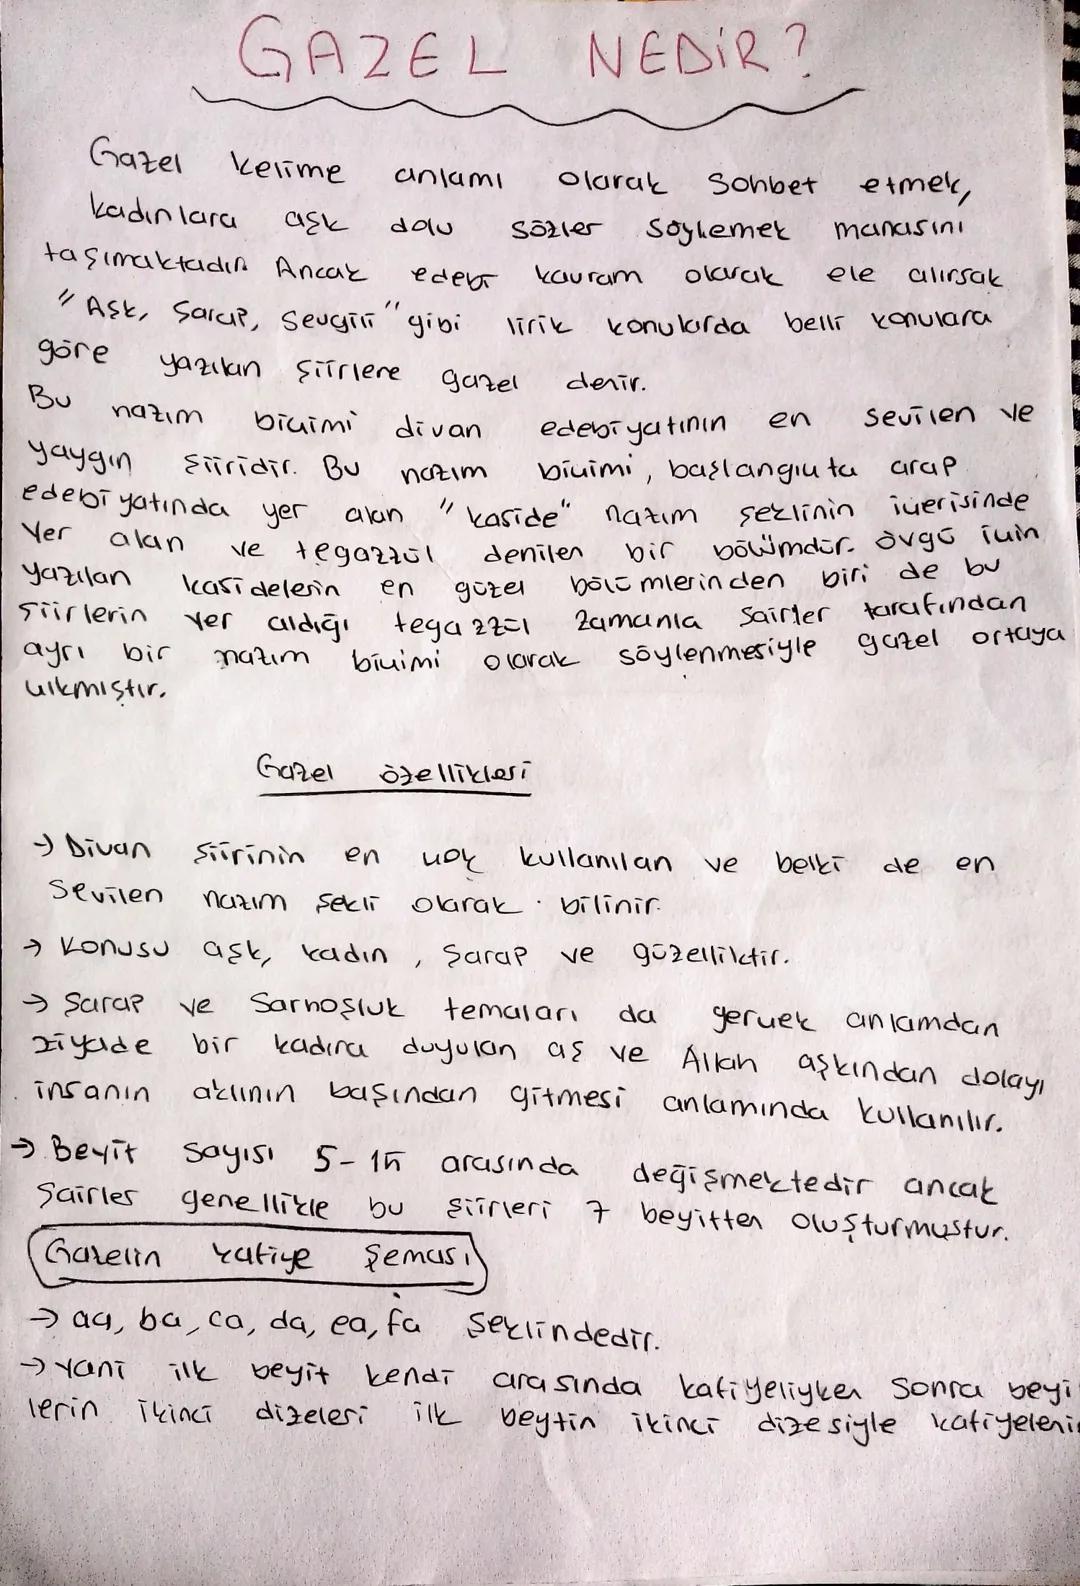 GAZEL NEDİR?
Gazel kelime anlamı olarak sohbet etmek,
kadınlara aşk dolu sözler söylemek manasını
taşımaktadır. Ancak edebi kavram olarak ele alırsak
"Aşk, Şarap, Sevgili" gibi lirik konularda belli konulara
göre yazılan şiirlere gazel denir.
Bu nazım biçimi divan edebiyatının en sevilen ve
yaygın şiiridir. Bu nazım biçimi, başlangıçta arap
edebiyatında yer alan "kaside" nazım şeklinin içerisinde
yer alan ve tegazzül denilen bir bölümdür. Övgü için
yazılan kasidelerin en güzel bölümlerinden biri de bu
şiirlerin yer aldığı tegazzül zamanla şairler tarafından
ayrı bir nazım biçimi olarak söylenmesiyle gazel ortaya
çıkmıştır.
Gazel özellikleri
→ Divan şiirinin en çok kullanılan ve belki de en
sevilen nazım şekli olarak bilinir.
→ Konusu aşk, kadın, şarap ve güzelliktir.
→ Şarap ve Sarhoşluk temaları da gerçek anlamdan
ziyade bir kadına duyulan aş ve Allah aşkından dolayı
insanın aklının başından gitmesi anlamında kullanılır.
→ Beyit sayısı 5-15 arasında değişmektedir ancak
şairler genellikle bu şiirleri 7 beyitten oluşturmuştur.
Gazelin kafiye şeması
→ aa, ba, ca, da, ea, fa şeklindedir.
→ Yani ilk beyit kendi arasında kafiyeliyken sonra beyi
lerin ikinci dizeleri ilk beytin ikinci dizesiyle kafiyelenir